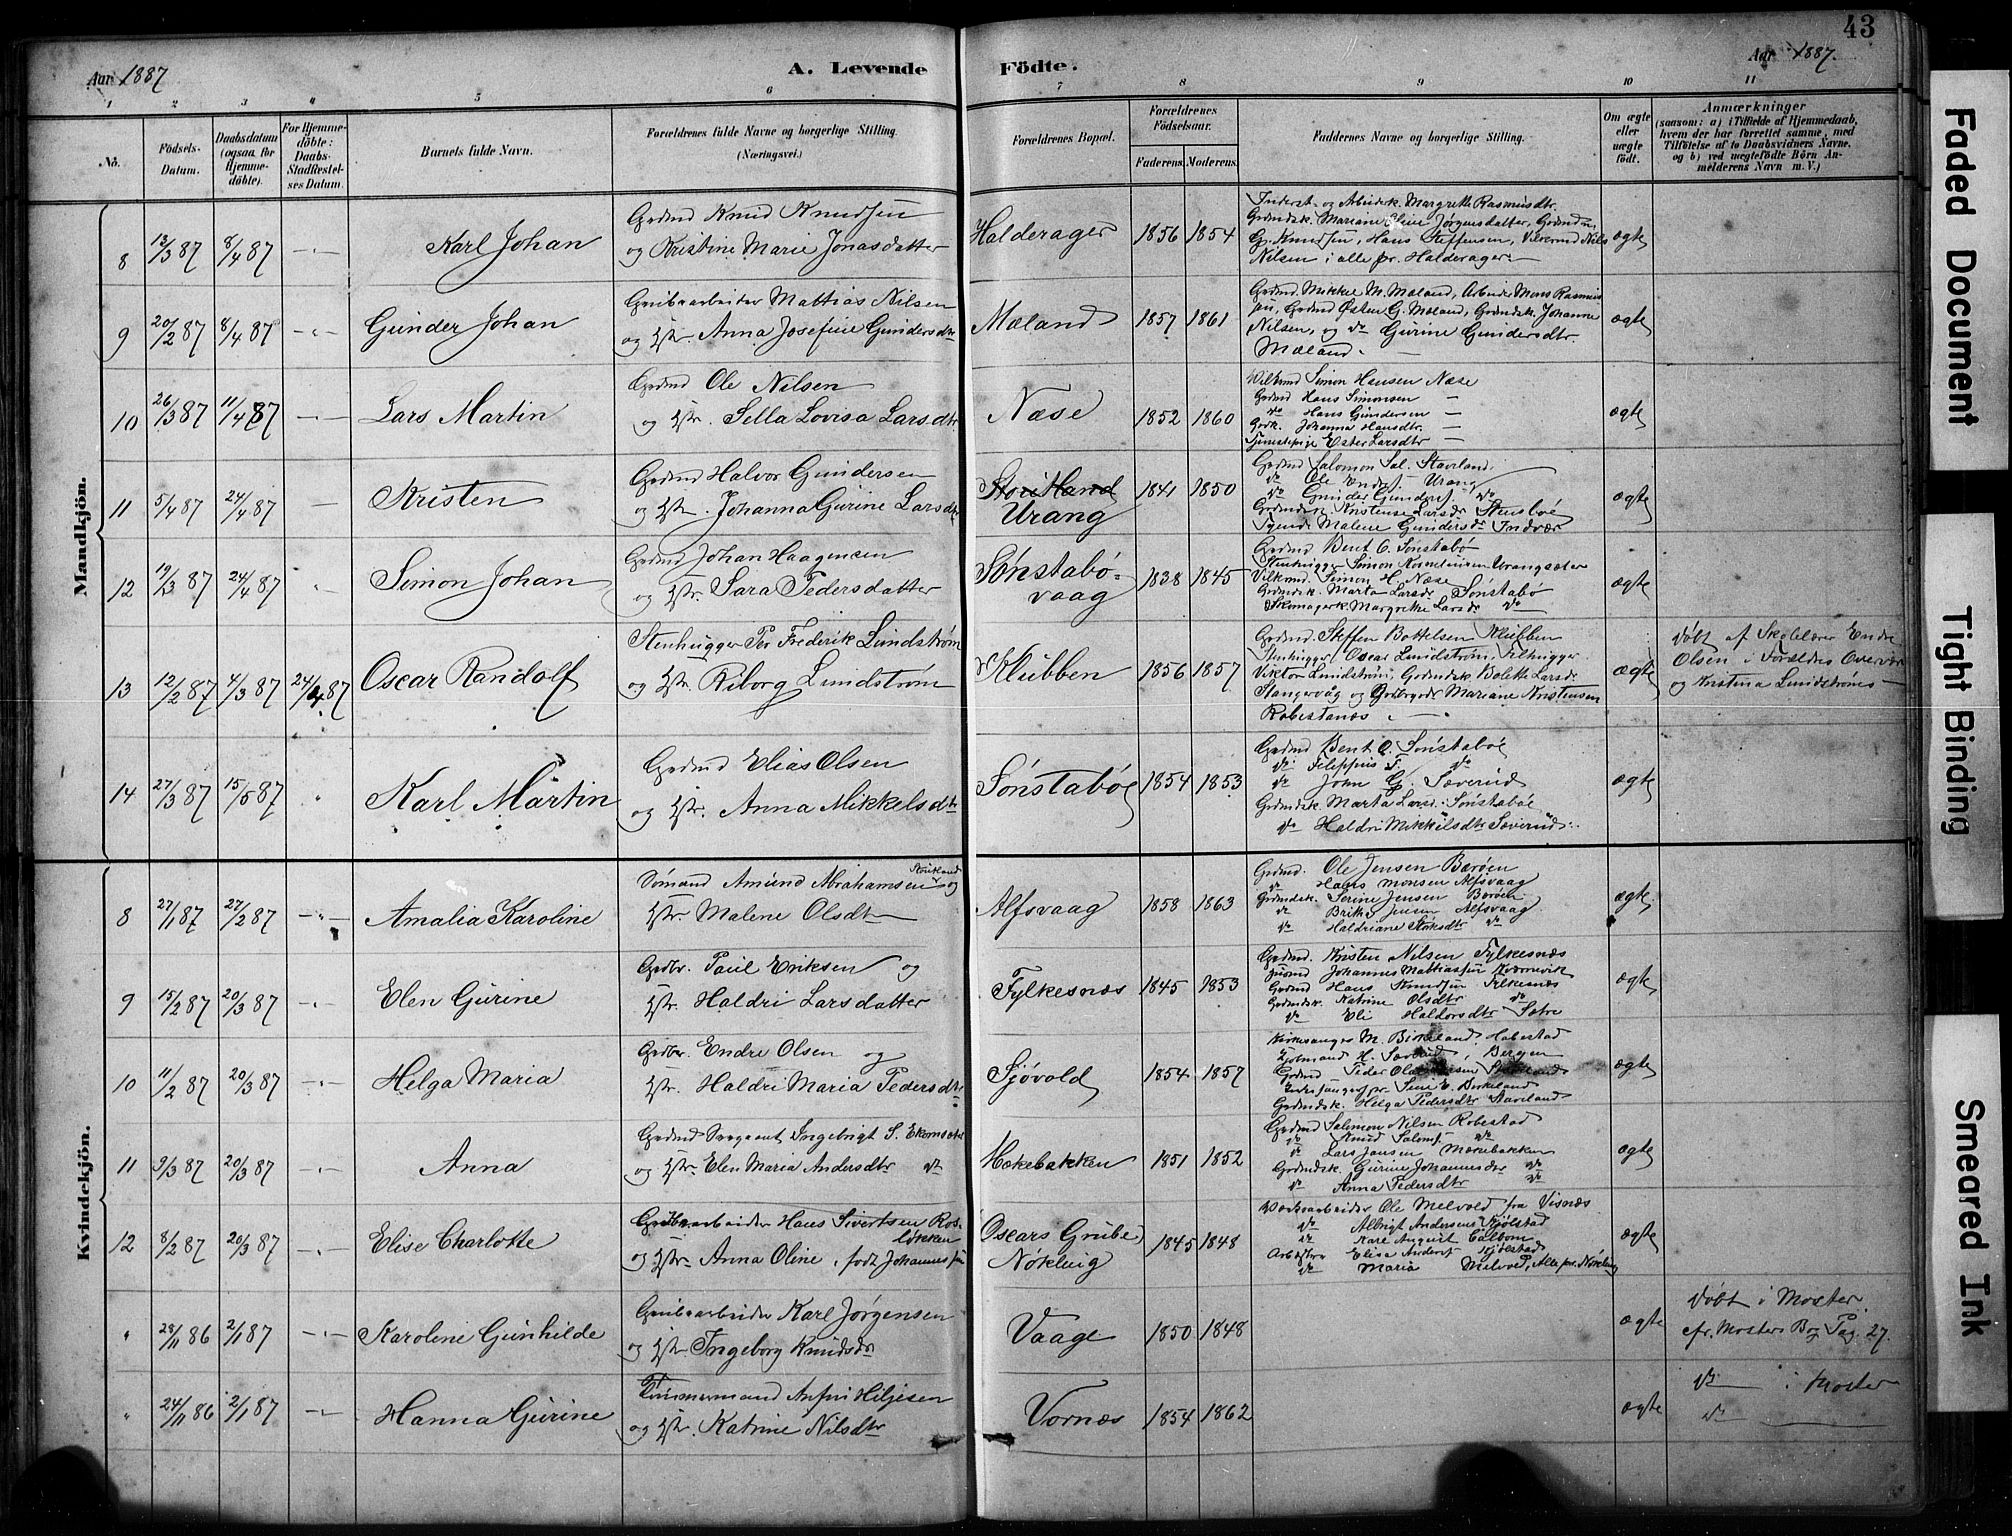 43
Aar 1887
A. Levende
Födte.
Aar 1887.
1 2 3 4 5 6 7 8 9 10 11
No.
Födsels-Datum.
Daabsdatum (ogsaa for Hjemme-döbte).
For Hjemme-döbte: Daabs-Stadfæstel-ses Datum.
Barnets fulde Navn.
Forældrenes fulde Navne og borgerlige Stilling. (Næringsvei.)
Forældrenes Bopæl.
Forældrenes Födselsaar.
Faderens. Moderens.
Faddernes Navne og borgerlige Stilling.
Om ægte eller uægte födt.
Anmærkninger
(saasom: a) i Tilfælde af Hjemmedaab, hvem der har forrettet samme, med Tilföielse af to Daabsvidners Navne. og b) ved uægtefödte Börn An-melderens Navn m. V.)
Mandkjön.
8 13/3 87 8/4 87 Karl Johan
Grdmd Knud Knudsen
og Kristine Marie Jonasdatter
Halderager 1856 1854
Inderst- og Arbeidsk. Margrethe Rasmusdtr.
Grdmdsk. Mariane Jørgensdatter, Grdmd
G. Knudsen, Hans Steffensen, Nils
Nilsen i alle pr. Halderager
ægte
9 20/2 87 8/4 87 Gunder Johan
Grubearbeider Mattias Nilsen
og Hstr. Anna Josefine Gundersdtr
Mæland 1857 1861
Grdmd. Mikkel M. Mæland, Arbeider Mons Rasmus
sen, Grdmd Østen G. Mæland, Grdmdsk. Johanne
Nilsen, og do Gurine Gundersdtr.
Mæland.
ægte
10 26/3 87 11/4 87 Lars Martin
Grdmd Ole Nilsen
og Hstr. Sella Lovisa Larsdtr
Næse 1852 1860
Vilkmd Simon Hansen Næse
Grdmd Hans Simonsen —
do Hans Gundersen —
Grdk. Johanna Hansdtr. —
Tjenestepige Ester Larsdtr —
ægte
11 5/4 87 24/4 87 Kristen
Grdmd Halvor Gundersen
og Hstr. Johanna Gurine Larsdtr
Urang 1841 1850
Grdmd Salomon Sal. Stavland.
do Ole Endres. Urang
do Gunder Gunders. do
Grdmdsk. Kristense Larsdr Stensbøe
Malene Gundersdr Indvær
ægte
12 19/3 87 24/4 87 Simon Johan
Grdmd Johan Haagensen
og Hstr. Sara Pedersdatter
Sønstabø-
vaag 1838 1845
Grdmd Bent O. Sønstabø
Stenhugger Simon Urangsæter
Vilkmd. Simon H. Næse
Grdmdsk. Marta Larsdr Sønstabø
Skomagerk. Margrethe Larsdr do
ægte
13 12/2 87 4/3 87 24/4 87 Oscar Randolf
Stenhugger Per Frederik Lundstrøm
og Hstr. Riborg Lundstrøm
Klubben 1856 1857
Grdmd. Steffen Bottelsen Klubben
Stenhugger Oscar Lundstrøm, Stenhugger
Viktor Lundstrøm, Grdmdsk. Bolette Larsdr
Stangervaag og Mariane Kristensen
Robestanæs
ægte
Døbt af Skolelærer Endre
Olsen i Forældres Overvær
og Kristina Lundstrøms —
14 27/3 87 15/5 87 Karl Martin
Grdmd Elias Olsen
og Hstr. Anna Mikkelsdtr
Sønstabøe 1854 1853
Grdmd Bent O. Sønstabøe
do Filippus F. do
do John G. Sæverud
Grdmdsk. Marta Larsd. Sønstabøe
do Haldri Mikkelsdtr Sæverud
ægte
Kvindekjön.
8 27/1 87 27/2 87 Amalia Karoline
Sømand Amund Abrahamsen og
Hstr. Malene Olsdtr
Alfsvaag 1858 1863
Grdmd. Ole Jensen Barøen
do Hans Monsen Alfsvaag
Grdmdsk. Serine Jensen Barøen
do Jensen Alfsvaag
do Haldriane do
ægte
9 15/2 87 20/3 87 Elen Gurine
Grdbr. Paul Eriksen og
Hstr. Haldri Larsdatter
Fylkesnæs 1845 1853
Grdmd. Kristen Nilsen Fylkesnæs
Johannes Mattiassen
Grdmd Hans Knudsen Fylkesnæs
Grdmdsk. Katrine Olsdtr do
do Eli Haldorsdtr Sætre
ægte
10 11/2 87 20/3 87 Helga Maria
Grdbr. Endre Olsen og
Hstr. Haldri Maria Pedersdtr
Sjøvold 1854 1857
Kirkesanger M. Birkeland, Habestad
H. Sæverud, Bergen
Grdmd Peder
Birkeland
Grdmdsk. Helga Pedersdtr Stavland
ægte
11 9/3 87 20/3 87 Anna
Grdmd Sergeant Ingebrigt S.
og Hstr. Elen Maria Andersdtr do
Hækebakken 1851 1852
Grdmd Salomon Nilsen Robestad
do Knud Saloms. do
do Lars Jensen
Grdmdsk. Gurine Johannesdr do
do Anna Pedersdtr do
ægte
12 8/2 87 20/3 87 Elise Charlotte
Grubearbeider Hans Sivertsen Ros-
løkken
og Hstr. Anna Oline, født Johannessen
Oscars Grube,
Nøkling 1845 1848
Værksarbeider Ole Melvold fra Visnæs
do Albrigt Andersens Mjølstad
do Karl August Calbom
Elisa Anders. Mjølstad
do Maria Melvold, Alle pr. Nøkling
ægte
" 28/11 86 2/1 87 Karoline Gunhilde
Grubearbeider Karl Jørgensen
og Hstr. Ingeborg Knudsdr
Vaage 1850 1848
ægte
Døbt i Moster.
cfr. Mosters Bog Pag. 27.
" 24/11 86 2/1 87 Hanna Gurine
Tømmermand Anfin Hiljesen
og Hstr. Katrine Nilsdtr
Vornæs 1854 1862
ægte
do — i Moster
do —
Faded Document
Tight Binding
Smeared Ink